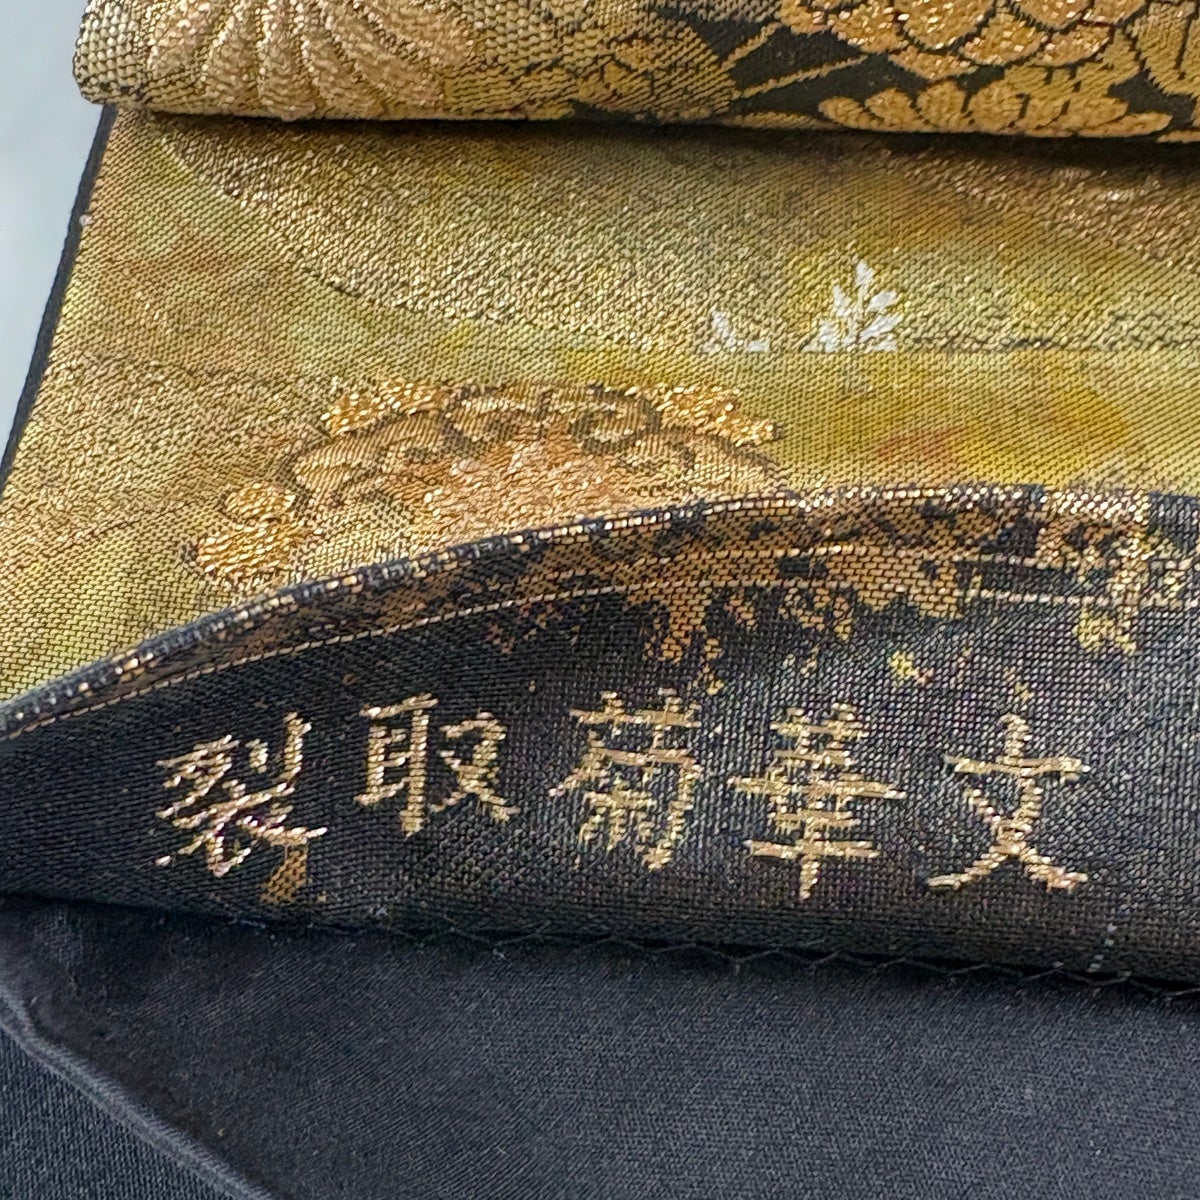 文華菊取裂